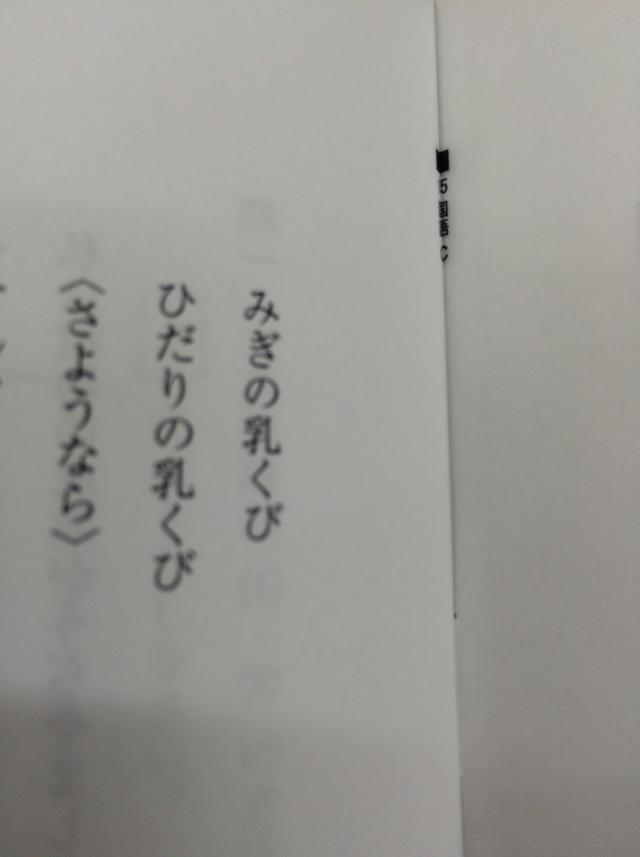 5国語C
みぎの乳くび
ひだりの乳くび
〈さようなら〉